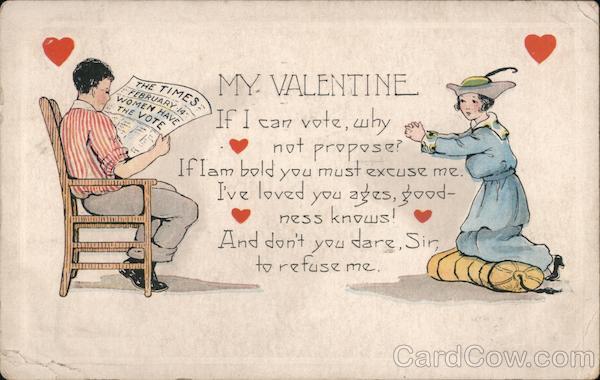 THE TIMES
FEBRUARY-14
WOMEN HAVE
THE VOTE
MY VALENTINE
If I can vote, why
not propose?
If I am bold you must excuse me.
I've loved you ages, good-
ness knows!
And don't you dare, Sir,
to refuse me.
CardCow.com